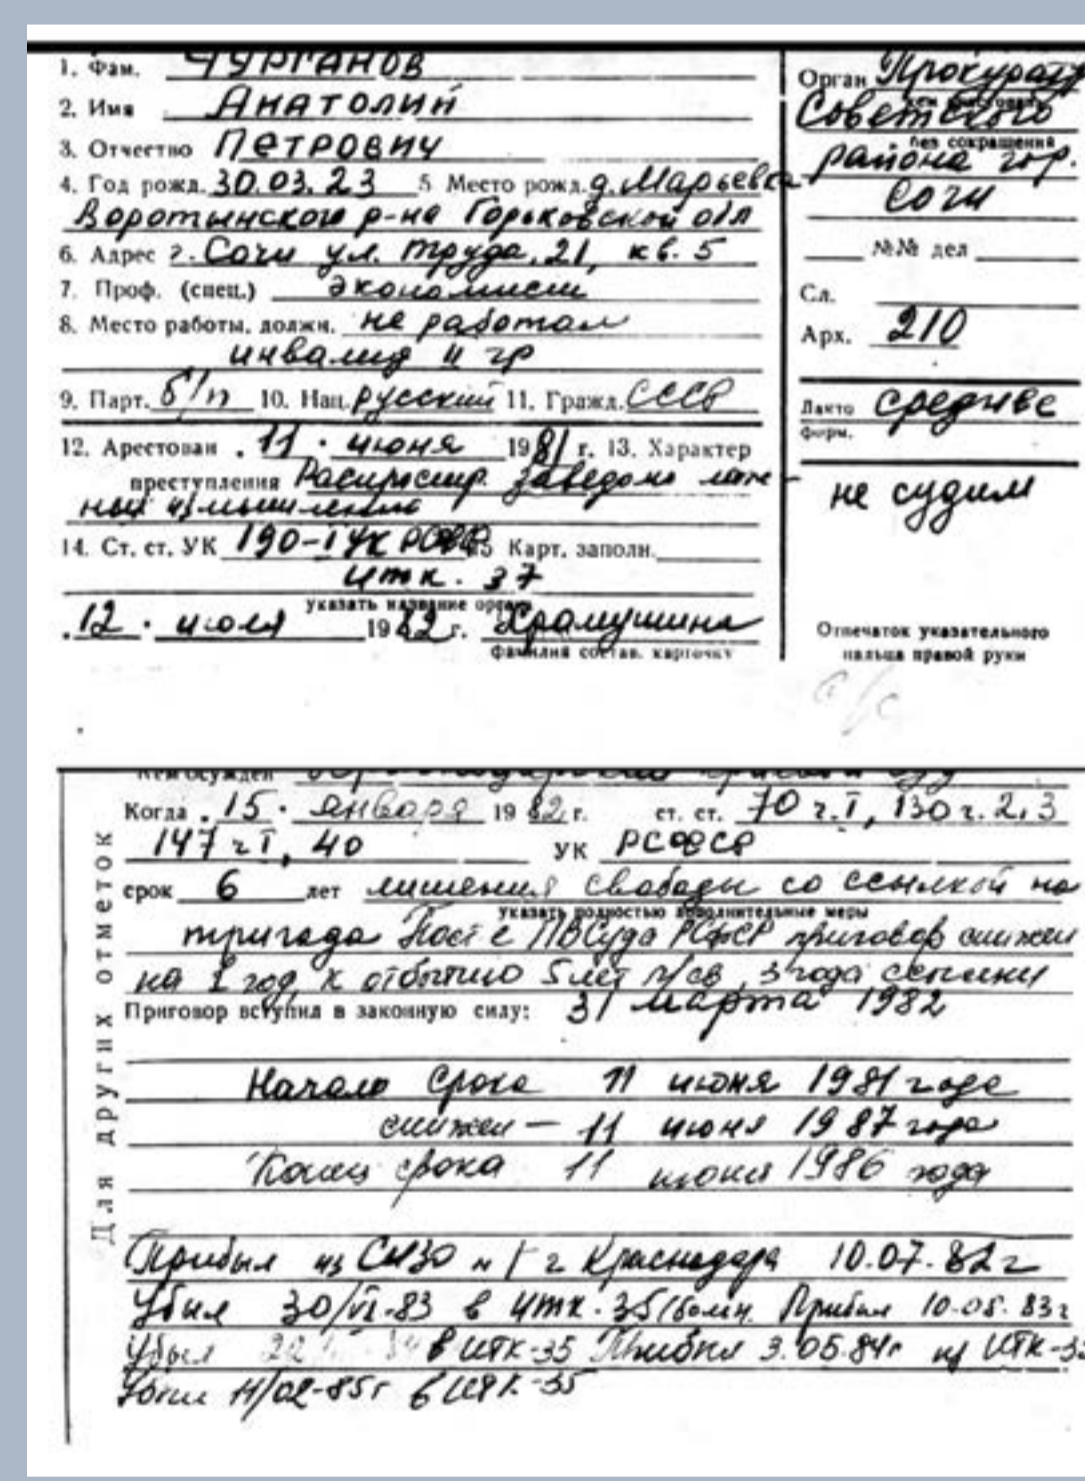 1. Фам. ЧУРГАНОВ
2. Имя Анатолий
3. Отчество Петрович
4. Год рожд. 30.03.23 5 Место рожд. д. Марьевка
Воротынского р-на Горьковской обл
6. Адрес г. Сочи ул. Труда, 21, кв. 5
7. Проф. (спец.) экономист
8. Место работы, должн. не работал
инвалид II гр
9. Парт. б/п 10. Нац. русский 11. Гражд. СССР
12. Арестован . 11 . июня 1981 г. 13. Характер
преступления Распростр. заведомо лож-
ных измышлений
14. Ст. ст. УК 190-1 УК РСФСР 15 Карт. заполн.
итк. 37
указать название органа
. 12 . июля 1982 г. Храмушина
фамилия состав. карточку
Орган Прокурат
Советского
без сокращения
района гор.
Сочи
№№ дел
Сл.
Арх. 210
Дакто форм. среднее
не судим
Отпечаток указательного
пальца правой руки
Для других отметок
Кем осужден Краснодарским краевым суд
Когда . 15 . января 1982 г. ст. ст. 70 ч. I, 130 ч. 2, 3
147 ч I, 40 УК РСФСР
срок 6 лет лишения свободы со ссылкой на
указать полностью дополнительные меры
три года Пост е ПВСуда РСФСР приговор снижен
на 1 год, к отбытию 5 лет л/св, 3 года ссылки
Приговор вступил в законную силу: 31 марта 1982
Начало срока 11 июня 1981 года
снижен — 11 июня 1987 года
Конец срока 11 июня 1986 года
Прибыл из СИЗО н 1 г Краснодара 10.07.82 г
Убыл 30/VI-83 в итк-35/больн. Прибыл 10-08.83 г
Убыл в ИТК-35 Прибыл 3.05.84 г из ИТК-35
Убыл 11/02-85 г в ИТК-35